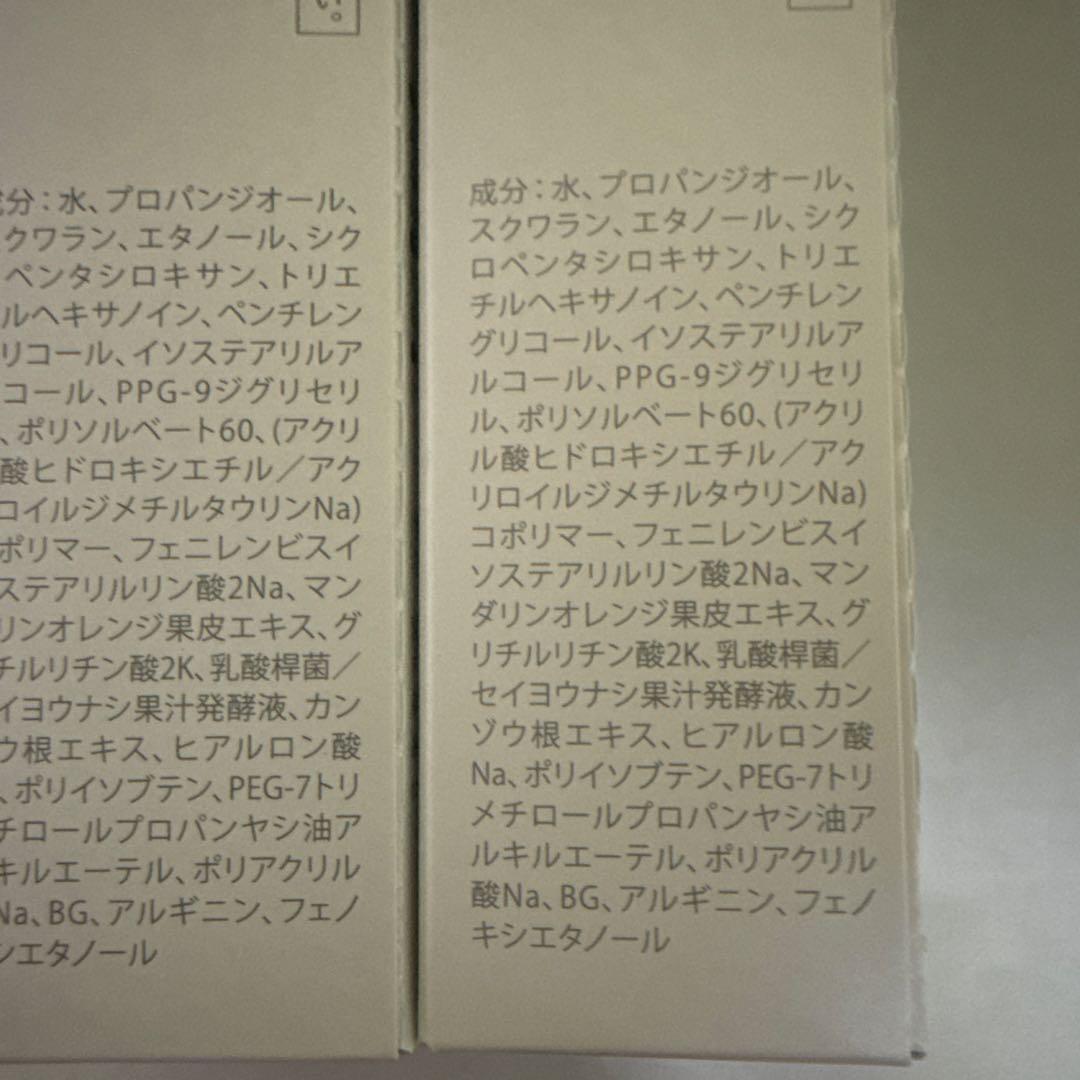 い。
分：水、プロパンジオール、
クワラン、エタノール、シク
ペンタシロキサン、トリエ
ルヘキサノイン、ペンチレン
リコール、イソステアリルア
コール、PPG-9ジグリセリ
、ポリソルベート60、(アクリ
酸ヒドロキシエチル／アク
ロイルジメチルタウリンNa)
ポリマー、フェニレンビスイ
ステアリルリン酸2Na、マン
リンオレンジ果皮エキス、グ
チルリチン酸2K、乳酸桿菌／
イヨウナシ果汁発酵液、カン
ウ根エキス、ヒアルロン酸
、ポリイソブテン、PEG-7トリ
チロールプロパンヤシ油ア
キルエーテル、ポリアクリル
Na、BG、アルギニン、フェノ
シエタノール
成分：水、プロパンジオール、
スクワラン、エタノール、シク
ロペンタシロキサン、トリエ
チルヘキサノイン、ペンチレン
グリコール、イソステアリルア
ルコール、PPG-9ジグリセリ
ル、ポリソルベート60、(アクリ
ル酸ヒドロキシエチル／アク
リロイルジメチルタウリンNa)
コポリマー、フェニレンビスイ
ソステアリルリン酸2Na、マン
ダリンオレンジ果皮エキス、グ
リチルリチン酸2K、乳酸桿菌／
セイヨウナシ果汁発酵液、カン
ゾウ根エキス、ヒアルロン酸
Na、ポリイソブテン、PEG-7トリ
メチロールプロパンヤシ油ア
ルキルエーテル、ポリアクリル
酸Na、BG、アルギニン、フェノ
キシエタノール